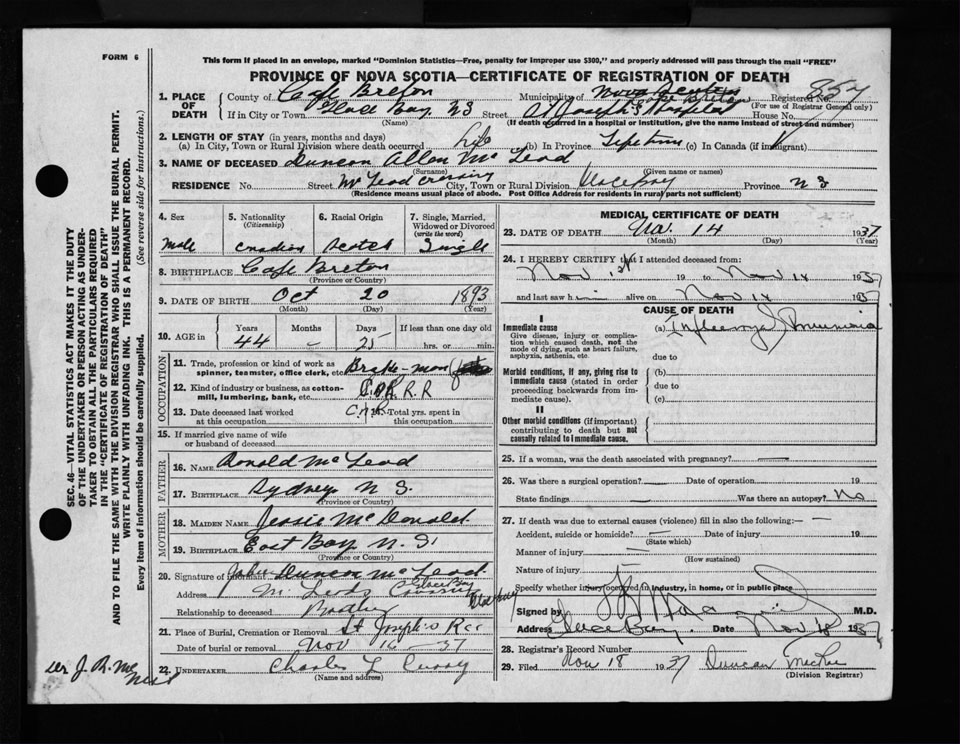 FORM 6
This form if placed in an envelope, marked "Dominion Statistics—Free, penalty for improper use $300," and properly addressed will pass through the mail "FREE"
PROVINCE OF NOVA SCOTIA—CERTIFICATE OF REGISTRATION OF DEATH
1. PLACE OF DEATH County of Cape Breton Municipality of Registered No. 857
(For use of Registrar General only)
If in City or Town Glace Bay, NS Street St Joseph's Hospital House No.
(Name) (If death occurred in a hospital or institution, give the name instead of street and number)
2. LENGTH OF STAY (in years, months and days)
(a) In City, Town or Rural Division where death occurred Life (b) In Province Lifetime (c) In Canada (if immigrant)
3. NAME OF DECEASED Duncan Allan Mc Leod
(Surname) (Given name or names)
RESIDENCE No. Street Mc Leod crossing City, Town or Rural Division Glace Bay Province N S
(Residence means usual place of abode. Post Office Address for residents in rural parts not sufficient)
4. Sex 5. Nationality (Citizenship) 6. Racial Origin 7. Single, Married, Widowed or Divorced (write the word)
Male Canadian Scotch Single
8. BIRTHPLACE Cape Breton
(Province or Country)
9. DATE OF BIRTH Oct 20 1893
(Month) (Day) (Year)
10. AGE in Years Months Days If less than one day old
44 - 25 hrs. or min.
OCCUPATION
11. Trade, profession or kind of work as spinner, teamster, office clerk, etc. Brake-man
12. Kind of industry or business, as cotton-mill, lumbering, bank, etc. R.R
13. Date deceased last worked at this occupation Total yrs. spent in this occupation
15. If married give name of wife or husband of deceased
FATHER
16. NAME Donald Mc Leod
17. BIRTHPLACE Sydney N S.
(Province or Country)
MOTHER
18. MAIDEN NAME Jessie McDonald
19. BIRTHPLACE East Bay N.S.
(Province or Country)
20. Signature of informant John Duncan McLeod
Address Mc Leods Crossing Glace Bay
Relationship to deceased Brother
21. Place of Burial, Cremation or Removal St Joseph's
Date of burial or removal Nov 16-37
22. UNDERTAKER Charles L Curry
(Name and address)
per J. R. Mc
MEDICAL CERTIFICATE OF DEATH
23. DATE OF DEATH Nov. 14 1937
(Month) (Day) (Year)
24. I HEREBY CERTIFY that I attended deceased from:
Nov 1st 19 to Nov 14 1937
and last saw him alive on Nov 14 1937
CAUSE OF DEATH
I
Immediate cause
Give disease, injury or complication which caused death, not the mode of dying, such as heart failure, asphyxia, asthenia, etc.
(a) Influenza Pneumonia
due to
Morbid conditions, if any, giving rise to immediate cause (stated in order proceeding backwards from immediate cause).
(b)
due to
(c)
II
Other morbid conditions (if important) contributing to death but not causally related to immediate cause.
25. If a woman, was the death associated with pregnancy?
26. Was there a surgical operation? Date of operation 19
State findings Was there an autopsy? No
27. If death was due to external causes (violence) fill in also the following:—
Accident, suicide or homicide? Date of injury 19
(State which)
Manner of injury
(How sustained)
Nature of injury
Specify whether injury occurred in industry, in home, or in public place
Signed by M.D.
Address Glace Bay. Date Nov 18 1937
28. Registrar's Record Number
29. Filed Nov 18 1937 Duncan MacRae
(Division Registrar)
SEC. 46—VITAL STATISTICS ACT MAKES IT THE DUTY
OF THE UNDERTAKER OR PERSON ACTING AS UNDER-
TAKER TO OBTAIN ALL THE PARTICULARS REQUIRED
IN THE "CERTIFICATE OF REGISTRATION OF DEATH"
AND TO FILE THE SAME WITH THE DIVISION REGISTRAR WHO SHALL ISSUE THE BURIAL PERMIT.
WRITE PLAINLY WITH UNFADING INK. THIS IS A PERMANENT RECORD.
Every item of information should be carefully supplied. (See reverse side for instructions.)